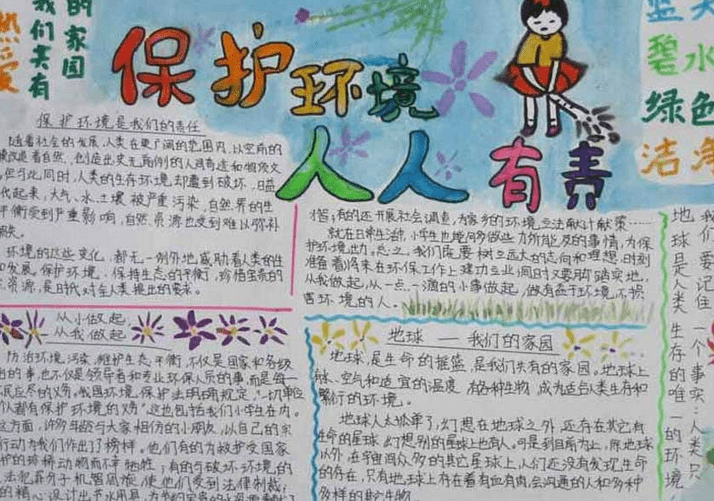 热爱
我们共有
的家园
保护环境
人人有责
蓝天
碧水
绿色
洁净
保护环境是我们的责任
随着社会的发展,人类在更广阔的范围内,以空前的
改造着自然,创造出史无前例的人间奇迹和物质文
但与此同时,人类的生存环境却遭到破坏,日益
起来,大气、水、土壤被严重污染,自然界的生
平衡受到严重影响,自然资源也受到难以弥补
损失。
环境的这些变化,都无一例外地威胁着人类的生
和发展。保护环境,保持生态的平衡,珍惜宝贵的
资源,是时代对全人类提出的要求。
从小做起,
从我做起
防治环境污染,维护生态平衡,不仅是国家和各级
的事,也不仅是领导者和专业环保人员的事,而是每一
民应尽的义务。我国环境保护法明确规定,“一切单位
个人都有保护环境的义务”。这也包括我们小学生在内。
方面,许多年龄与大家相仿的小朋友,以自己的实
行动为我们作出了榜样。他们有的为救护受国家
护的珍稀动物而牺牲;有的与破坏环境的
法犯罪分子机智周旋,使他们受到法律制裁;
设计出节水用具
有的还开展社会调查,为家乡的环境立法献计献策……
就在日常生活中,小学生也能够多做些力所能及的事情,为保
护环境出力。总之,我们既要树立远大的志向和理想,时刻
准备着将来在环保工作上建功立业,同时又要脚踏实地,
从我做起,从一点一滴的小事做起,做有益于环境、不损
害环境的人。
地球——我们的家园
地球,是生命的摇篮,是我们共有的家园。地球上
空气和适宜的温度,有各种生物,成为适合人类生存和
繁衍的环境。
地球人太孤单了,幻想在地球之外,还存在其它有
生命的星球,幻想别的星球上也有人。可是到目前为止,除地球
以外,在宇宙间众多的其它星球上,人们还没有发现生命
的存在,只有地球上存在着有血有肉,会沟通的人和多种
多样的其它生物。
我们要记住一个事实:人类只
地球是人类生存的唯一的环境